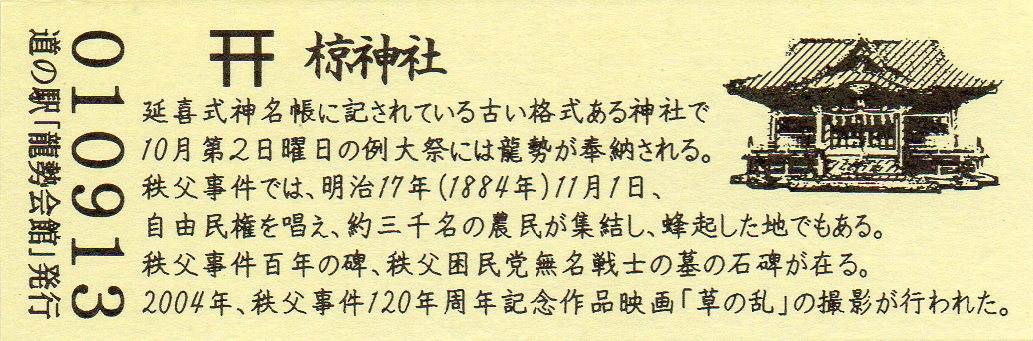 椋神社
延喜式神名帳に記されている古い格式ある神社で
10月第2日曜日の例大祭には龍勢が奉納される。
秩父事件では、明治17年(1884年)11月1日、
自由民権を唱え、約三千名の農民が集結し、蜂起した地でもある。
秩父事件百年の碑、秩父困民党無名戦士の墓の石碑が在る。
2004年、秩父事件120年周年記念作品映画「草の乱」の撮影が行われた。
010913
道の駅「龍勢会館」発行